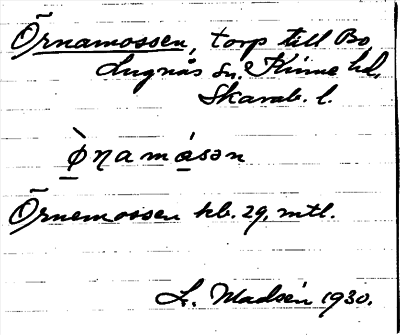 Örnamossen, torp till Bo
Lugnås sn. Kinne hd.
Skarab. l.
ø̀ṇamåsən
Örnemossen kb. 29, mtl.
L. Madsén 1930.